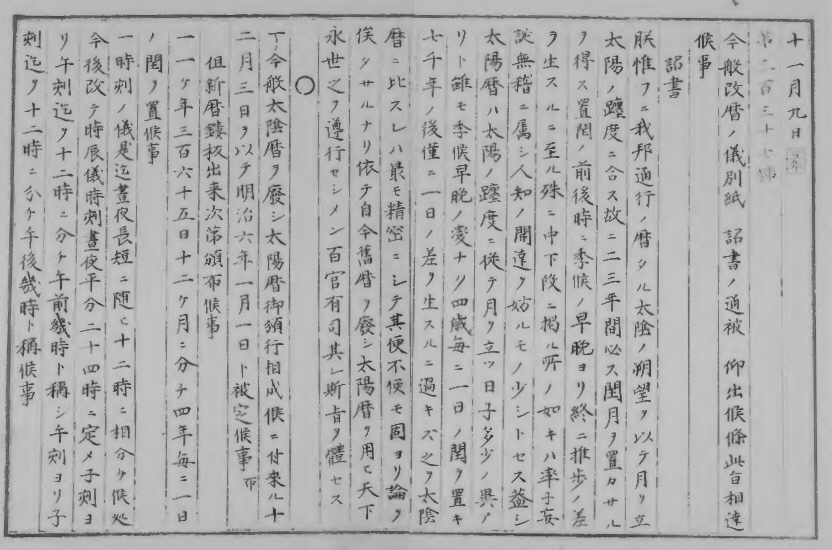 十一月九日
第二百三十七号
今般改暦ノ儀別紙 詔書ノ通被 仰出候條此旨相達
候事
詔書
朕惟フニ我邦通行ノ暦タル太陰ノ朔望ヲ以テ月ヲ立
太陽ノ躔度ニ合ス故ニ二三年間必ス閏月ヲ置カサル
ヲ得ス置閏ノ前後時ニ季候ノ早晩ヨリ終ニ推歩ノ差
ヲ生スルニ至ル殊ニ中下段ニ掲ル所ノ如キハ率子妄
誕無稽ニ属シ人知ノ開達ヲ妨ルモノ少シトセス蓋シ
太陽暦ハ太陽ノ躔度ニ従テ月ヲ立ツ日子多少ノ異ア
リト雖モ季候早晩ノ変ナク四歳毎ニ一日ノ閏ヲ置キ
七千年ノ後僅ニ一日ノ差ヲ生スルニ過キズ之ヲ太陰
暦ニ比スレハ最モ精密ニシテ其便不便モ固ヨリ論ヲ
俟タサルナリ依テ自今舊暦ヲ廃シ太陽暦ヲ用ヒ天下
永世之ヲ遵行セシメン百官有司其レ斯旨ヲ體セヨ
○
今般太陰暦ヲ廃シ太陽暦御頒行相成候ニ付来ル十
二月三日ヲ以テ明治六年一月一日ト被定候事 布
但新暦鏤板出来次第頒布候事
一一ヶ年三百六十五日十二ヶ月ニ分チ四年毎ニ一日
ノ閏ヲ置候事
一時刻ノ儀是迄晝夜長短ニ随ヒ十二時ニ相分ケ候処
今後改テ時辰儀時刻晝夜平分二十四時ニ定メ子刻ヨ
リ午刻迄ヲ十二時ニ分チ午前幾時ト稱シ午刻ヨリ子
刻迄ヲ十二時ニ分ケ午後幾時ト稱候事